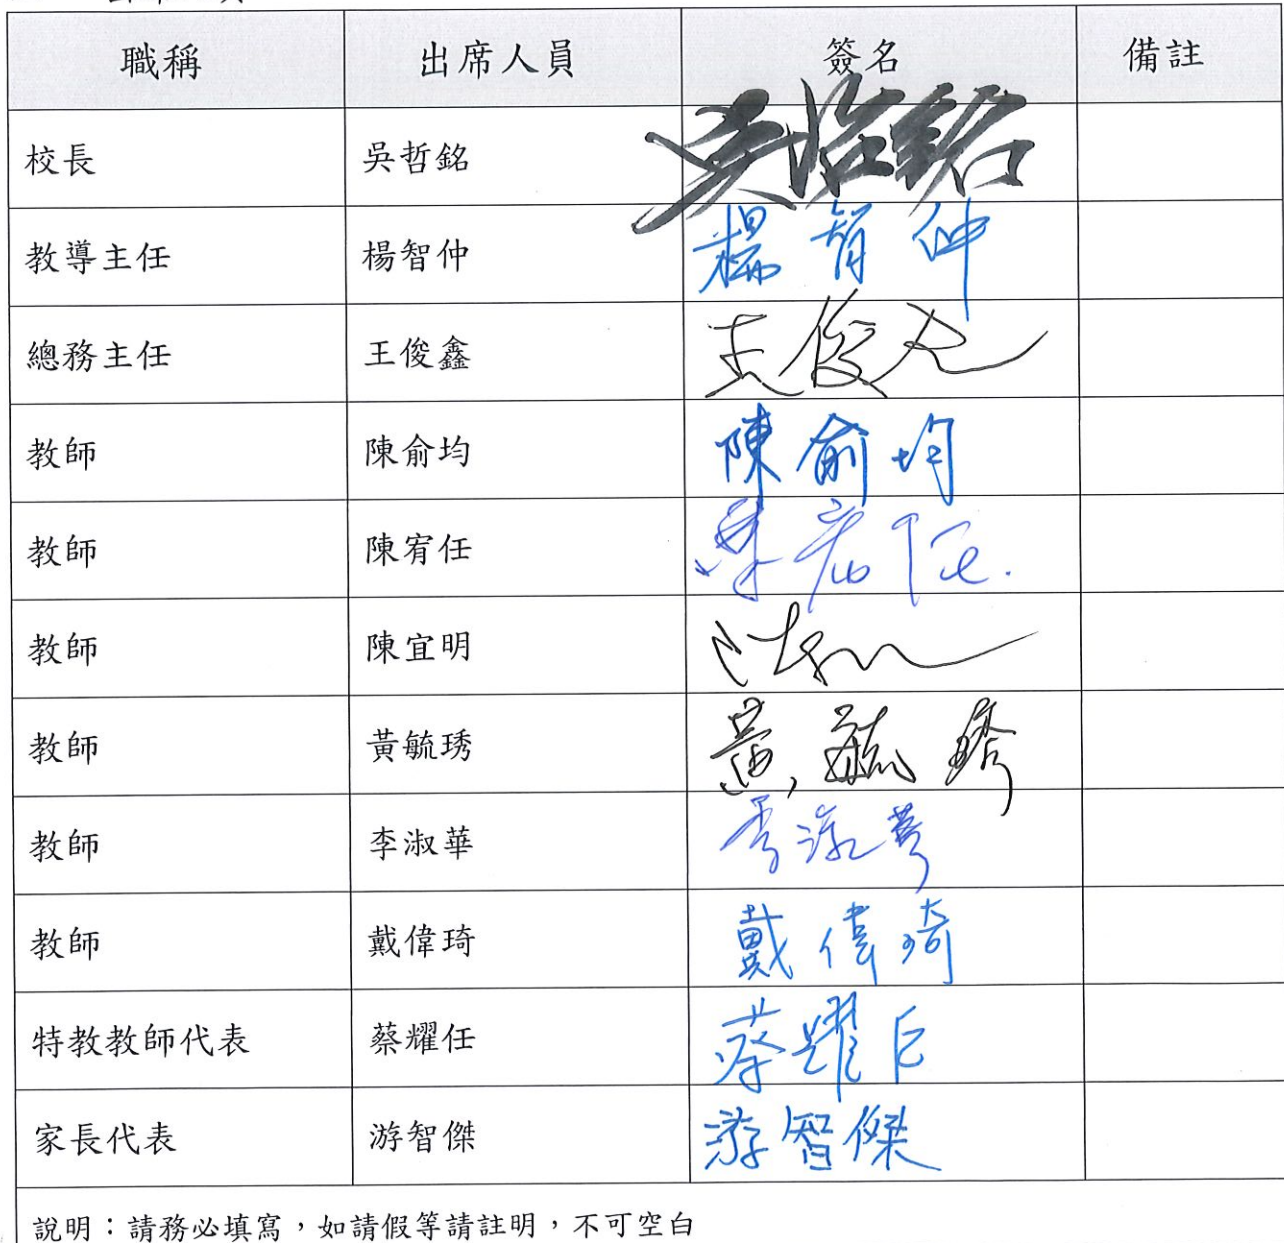 職稱 出席人員 簽名 備註
校長 吳哲銘 吳哲銘
教導主任 楊智仲 楊智仲
總務主任 王俊鑫 王俊
教師 陳俞均 陳俞均
教師 陳宥任
教師 陳宜明
教師 黃毓琇 黃毓琇
教師 李淑華 李淑華
教師 戴偉琦 戴偉琦
特教教師代表 蔡耀任 蔡耀任
家長代表 游智傑 游智傑
說明：請務必填寫，如請假等請註明，不可空白